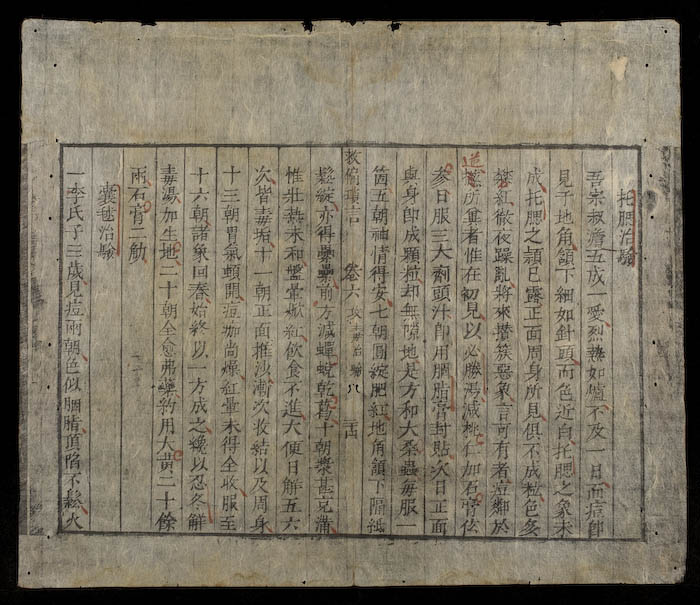 托腮治驗
吾宗叔澹五成一愛烈熱如爐不及一日而痘即
見于地角頷下細如針頭而色近白托腮之象未
成托腮之顙已露正面周身所見俱不成粒色多
焚紅徹夜躁亂將來攢簇惡象言可有者痘鄰於
逆然所冀者惟在初見以必勝湯減桃仁加石膏
參日服三大劑頭汁即用胭脂膏封貼次日正面
與身即成顆粒却無隙地是方和大桑蟲每服一
箇五朝神情得安七朝圓綻肥紅地角頷下隔紙
救偏瑣言 卷六 攻毒治驗 八
鬆綻亦得疊疊前方減蟬蛻乾葛十朝漿甚充滿
惟壯熱未和盤暈焮紅飲食不進大便日解五六
次皆毒垢十一朝正面推沙漸次收結以及周身
十三朝胃氣頓開痘痂尚燥紅暈未得全收服至
十六朝諸象回春始終以一方成之後以忍冬解
毒湯加生地二十朝全愈弗藥約用大黃二十餘
兩石膏二觔
囊毬治驗
一李氏子三歲見痘兩朝色似胭脂頂陷不鬆火